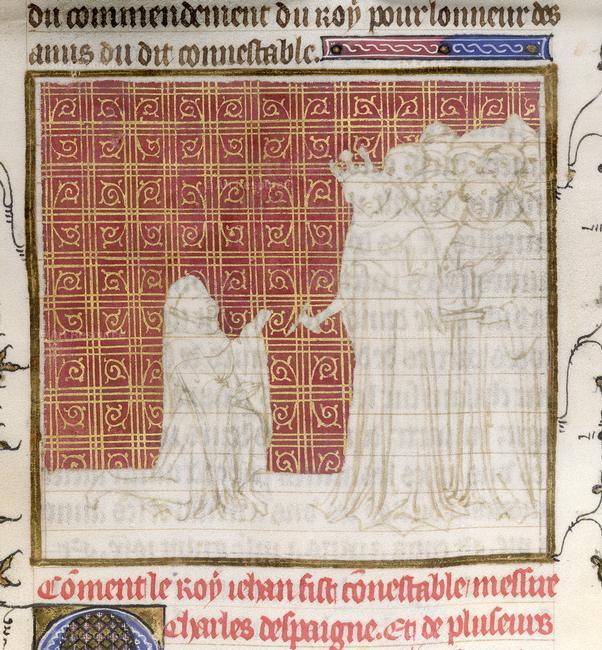 du commendement du Roy pour lonneur des
amis du dit connestable.
Coment le Roy iehan fist conestable messire
Charles despaigne. Et de pluseurs